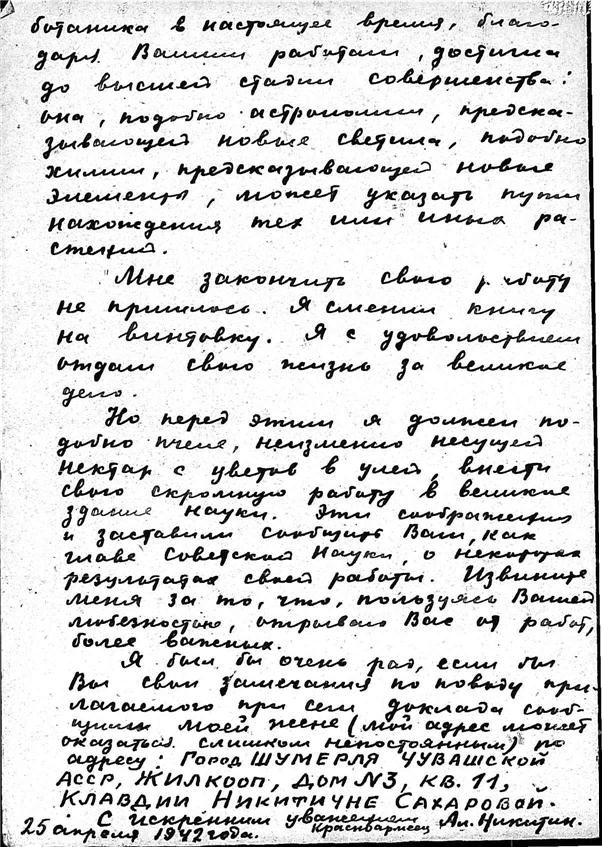 ботаника в настоящее время, благо-
даря Вашим работам, достигла
до высшей стадии совершенства:
она, подобно астрономии, предска-
зывающей новые светила, подобно
химии, предсказывающей новые
элементы, может указать пути
нахождения тех или иных ра-
стений.
Мне закончить свою работу
не пришлось. Я сменил книгу
на винтовку. Я с удовольствием
отдам свою жизнь за великое
дело.
Но перед этим я должен по-
добно пчеле, неизменно несущей
нектар с цветов в улей, внести
свою скромную работу в великое
здание науки. Эти соображения
и заставили сообщить Вам, как
главе Советской Науки, о некоторых
результатах своей работы. Извините
меня за то, что, пользуясь Вашей
любезностью, отрываю Вас от работ,
более важных.
Я был бы очень рад, если бы
Вы свои замечания по поводу при-
лагаемого при сем доклада сооб-
щили моей жене (мой адрес может
оказаться слишком непостоянным) по
адресу: Город ШУМЕРЛЯ ЧУВАШСКОЙ
АССР, ЖИЛКООП, ДОМ N3, КВ. 11,
КЛАВДИИ НИКИТИЧНЕ САХАРОВОЙ.
С искренним уважением
Красноармеец Ал. Никитин.
25 апреля 1942 года.